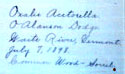 Oxalis Acetosella
White River, Vermont
July 7, 1898.
Common Wood-Sorrel